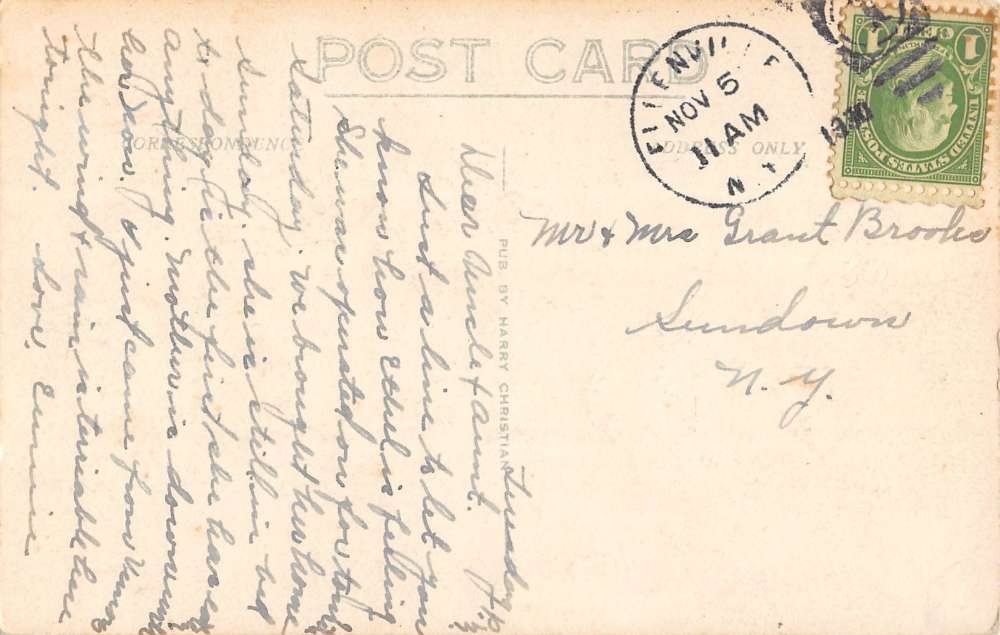 POST CARD
CORRESPONDENCE
ADDRESS ONLY
ELLENVILLE
NOV 5
11 AM
1930
N.Y.
1
1
UNITED STATES POSTAGE
PUB BY HARRY CHRISTIAN
Mr & Mrs Grant Brooks
Sundown
N.Y.
Tuesday
Dear Uncle & Aunt.
Just a line to let you
know how Ethel is feeling
She was operated on for
Saturday. We brought her home
Sunday, she is still in bed
to-day is the first she has
anything. Mother is down
her now. I just came from
the wind & rain is terrible here
tonight. Love,